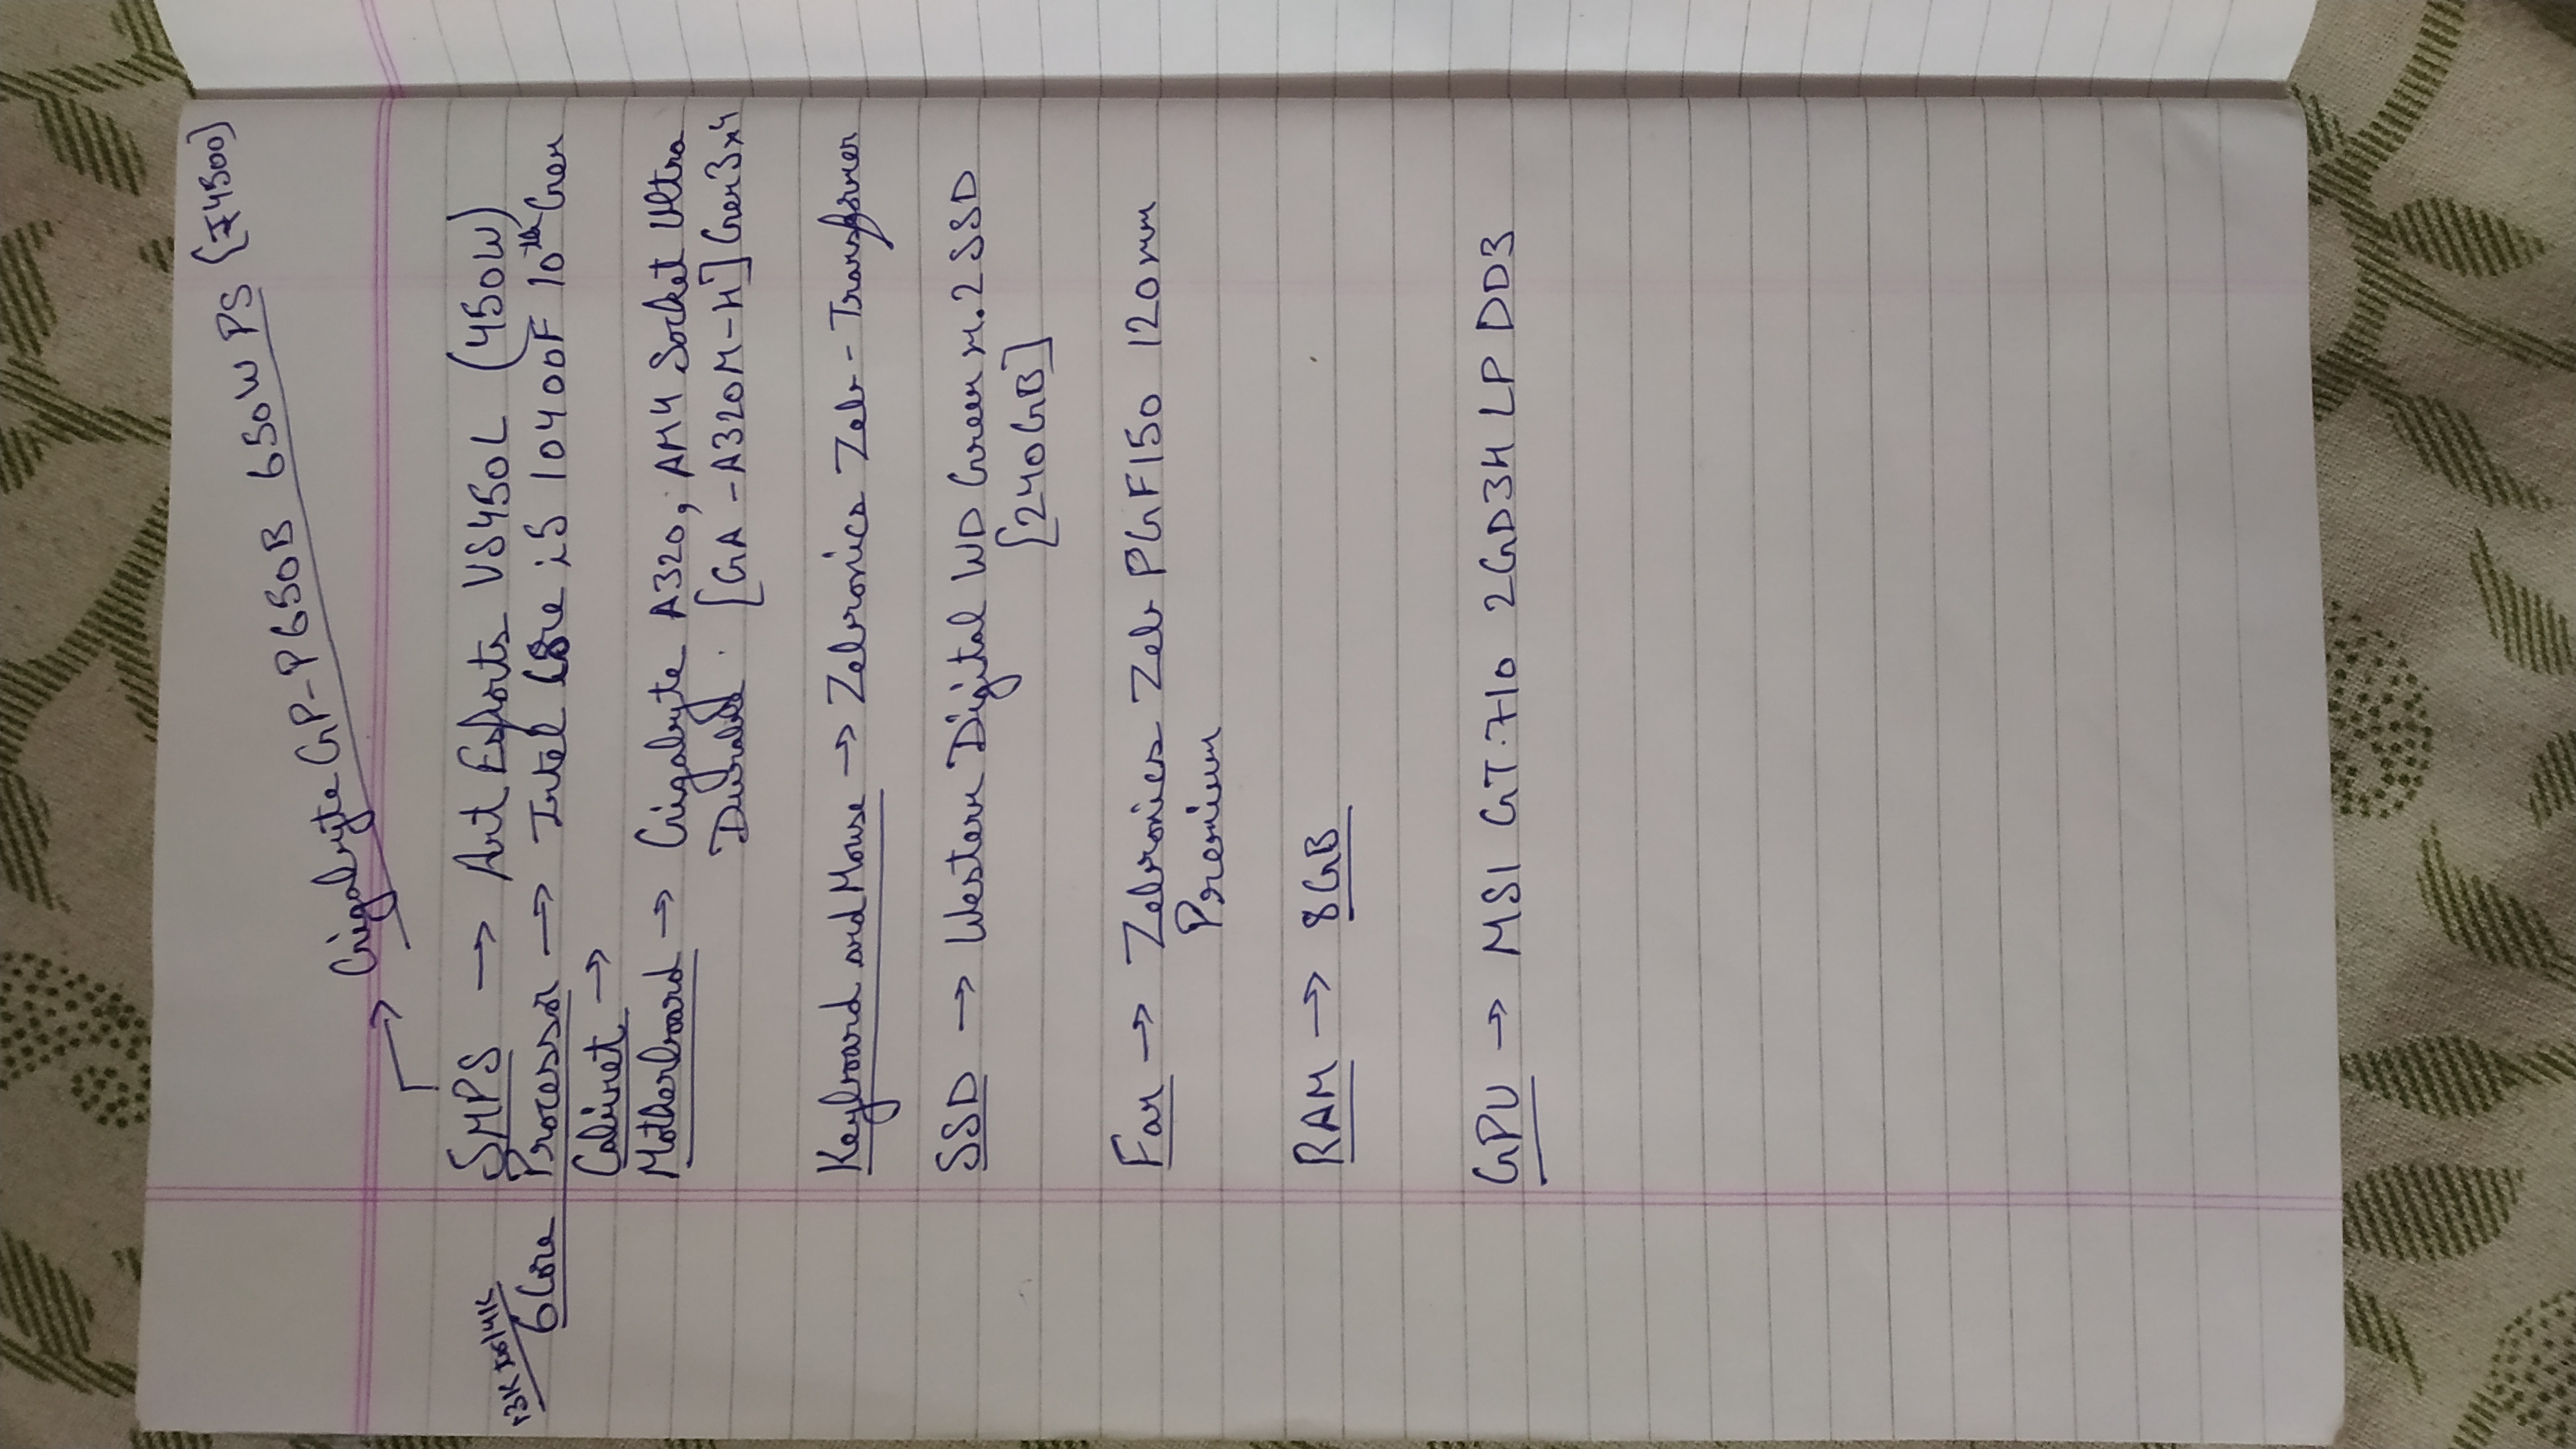 Gigabyte GP-P650B 650W PS [₹4500]
SMPS → Art Esports VS450L (450W)
13K to 14K
6 Core Processor → Intel Core i5 10400F 10th Gen
Cabinet →
Motherboard → Gigabyte A320, AM4 Socket Ultra
Durable [GA-A320M-H] Gen3x4
Keyboard and Mouse → Zebronics Zeb-Transformer
SSD → Western Digital WD Green M.2 SSD
[240GB]
Fan → Zebronics Zeb PGF150 120mm
Premium
RAM → 8GB
GPU → MSI GT.710 2GD3H LP DD3